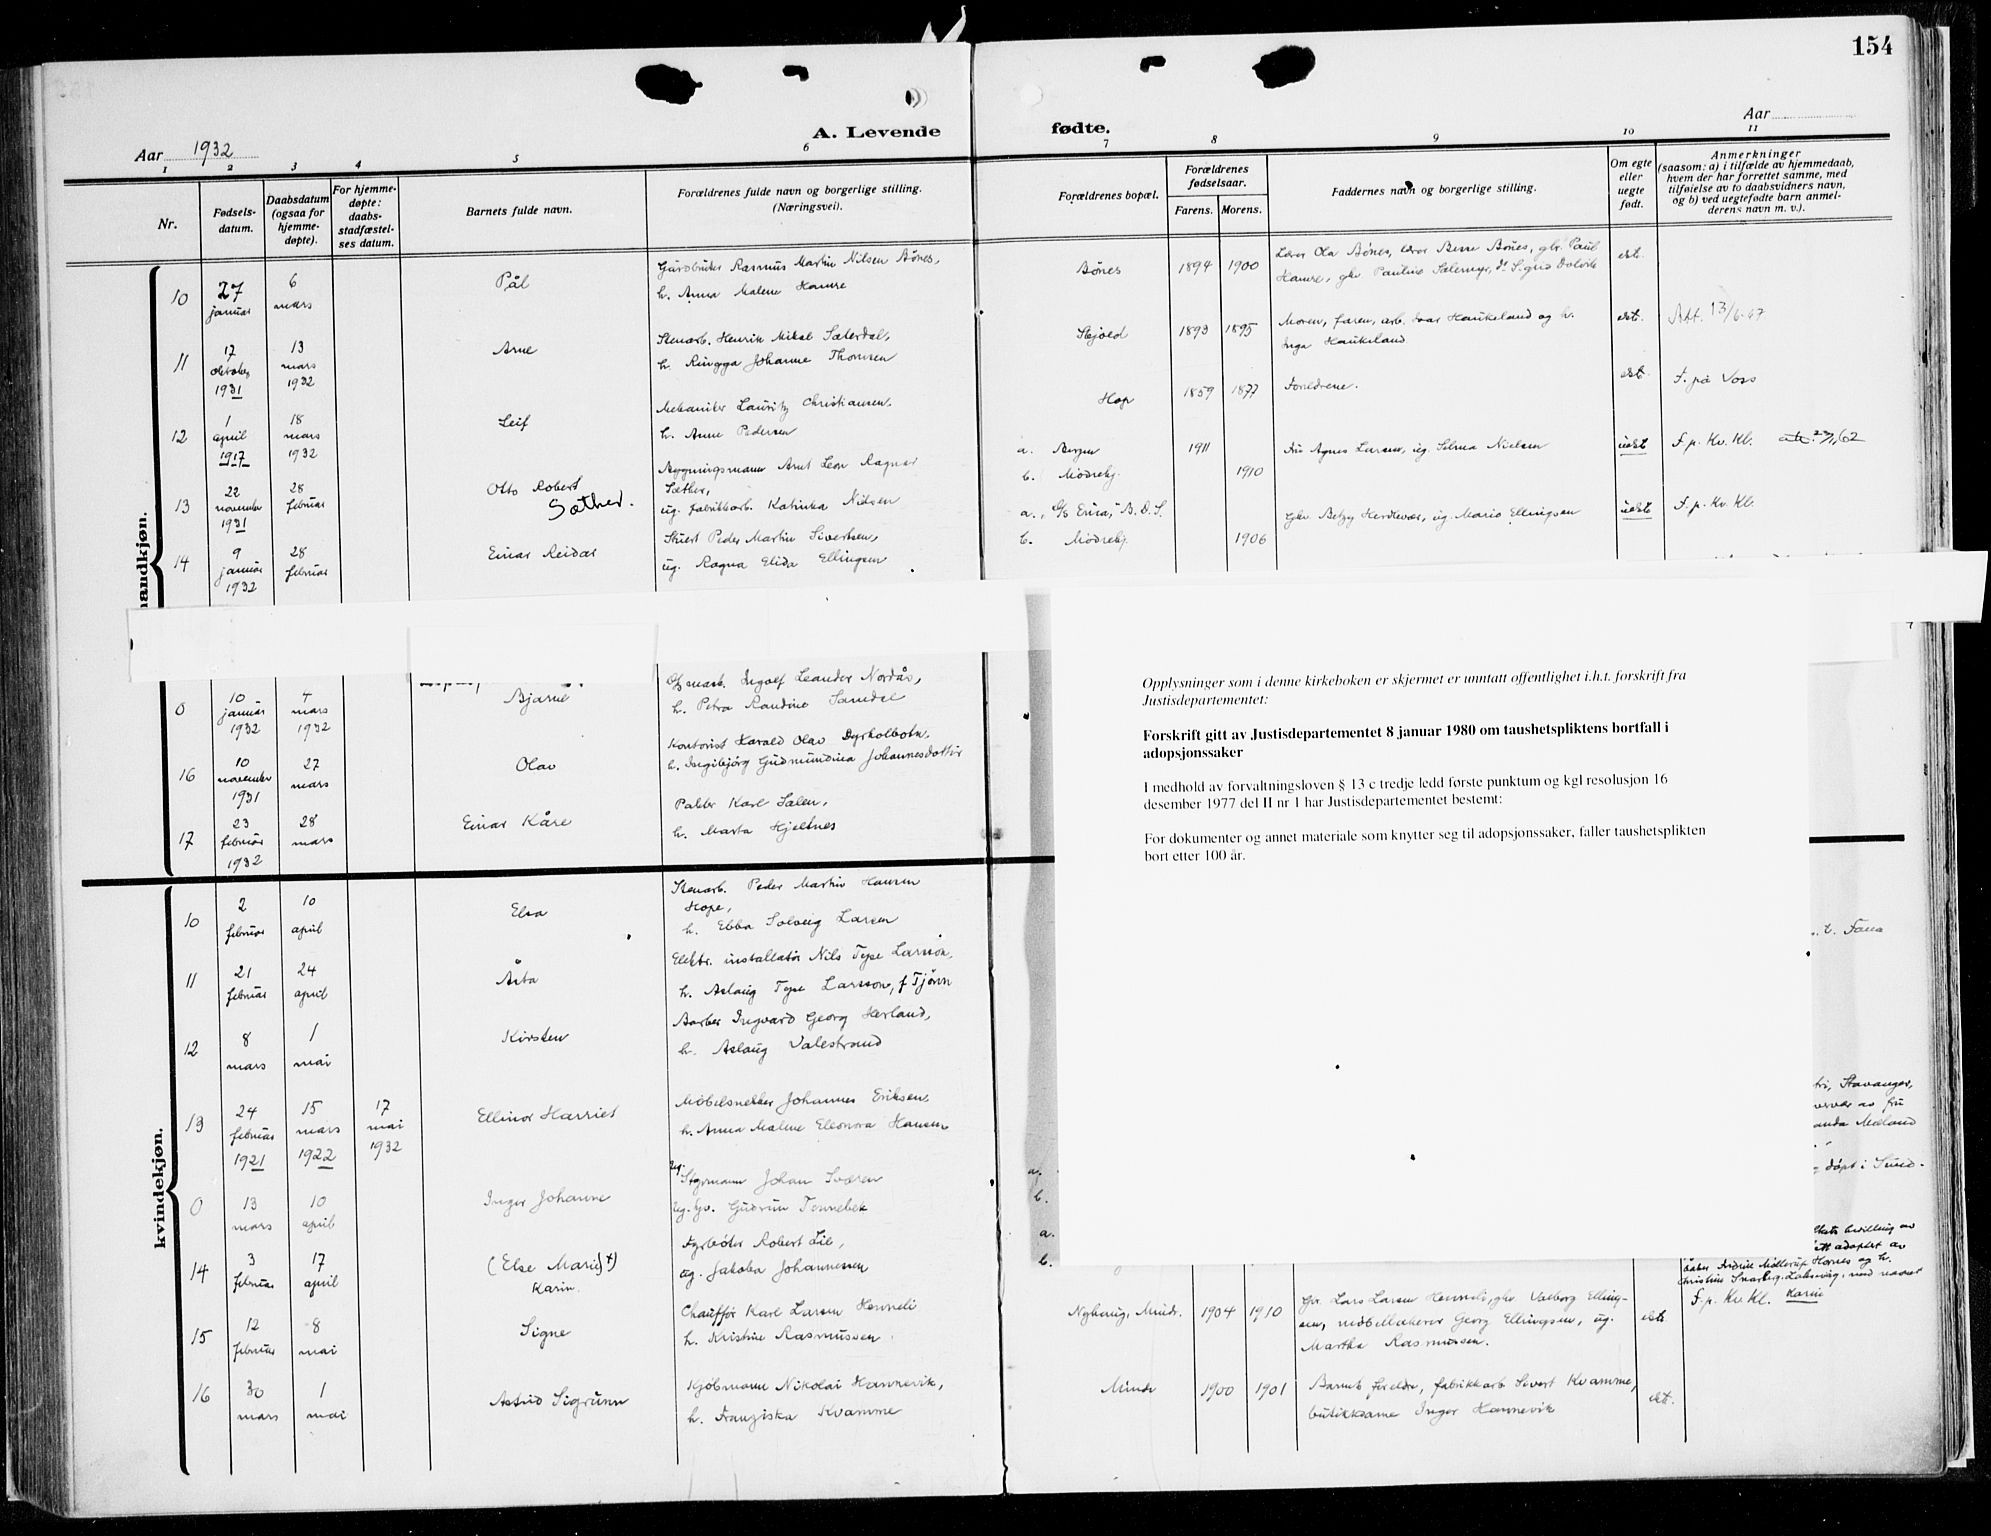 154
A. Levende fødte.
Aar 1932
Aar
1 2 3 4 5 6 7 8 9 10 11
Nr.
Fødsels-
datum.
Daabsdatum
(ogsaa for
hjemme-
døpte).
For hjemme-
døpte:
daabs-
stadfæstel-
ses datum.
Barnets fulde navn.
Forældrenes fulde navn og borgerlige stilling.
(Næringsvei).
Forældrenes bopæl.
Forældrenes
fødselsaar.
Farens. Morens.
Faddernes navn og borgerlige stilling.
Om egte
eller
uegte
født.
Anmerkninger
(saasom: a) i tilfælde av hjemmedaab,
hvem der har forrettet samme, med
tilføielse av to daabsvidners navn,
og b) ved uegtefødte barn anmel-
derens navn m. v.).
mandkjøn.
10 27 januar 6 mars Pål
Gårdbruker Rasmus Martin Nilsen Bønes,
h. Anna Malene Hamre
Bønes 1894 1900
Lærer Ola Bønes, lærer Bønes, gbr. Paul
Hamre, Pauline
ekt.
11 17 oktober 1931 13 mars 1932 Arne
Stenarb. Henrik Mikal Sæterdal,
h. Ringga Johanne Thomsen
Skjold 1893 1895
Moren, faren, arb. Ivar Haukeland og h.
Inga Haukeland
ekt. Att. 13/6-67
12 1 april 1917 18 mars 1932 Leif
Mekaniker Lauritz Christiansen.
h. Anne Pedersen
Hop 1859 1877 Foreldrene. ekt. F. på Voss
13 22 november 1931 28 februar Otto Robert Sæther.
Bygningsmann Arnt Leon Ragnar
Sæther,
ug. fabrikkarb. Katinka Nilsen
a. Bergen 1911
b. Midtrekj. 1910
Fru Agnes Larsen, ug. Selma Nielsen
uekt F. p. Kv. Kl.
14 9 januar 1932 28 februar Einar Reidar
Stuert Peder Martin Sivertsen,
ug. Ragna Elida Ellingsen
a. B.D.S.
b. 1906
ug. Marie Ellingsen
uekt F. p. Kv. Kl.
0 10 januar 1932 mars 1932 Bjarne
Ingolf Leander Nordås,
h. Petra Randine Sandal
16 10 november 1931 27 mars Olav
Kontorist Harald Olav Dyrkolbotn,
h. Ingibjörg Gudmundina Johannesdottir
17 23 februar 1932 28 mars Einar Kåre
Karl Salen,
h. Marta Hjeltnes
Opplysninger som i denne kirkeboken er skjermet er unntatt offentlighet i.h.t. forskrift fra
Justisdepartementet:
Forskrift gitt av Justisdepartementet 8 januar 1980 om taushetspliktens bortfall i
adopsjonssaker
I medhold av forvaltningsloven § 13 c tredje ledd første punktum og kgl resolusjon 16
desember 1977 del II nr 1 har Justisdepartementet bestemt:
For dokumenter og annet materiale som knytter seg til adopsjonssaker, faller taushetsplikten
bort etter 100 år.
kvindekjøn.
10 2 februar 10 april Elsa
Stenarb. Peder Martin Hansen
Hope,
h. Ebba Solveig Larsen
Fana
11 21 februar 24 april Åsta
Elektr. installatør Nils Larsson,
h. Aslaug Larsson, f Tjønn
12 8 mars 1 mai Kirsten
Barber Ingvard Georg Herland,
h. Aslaug Valestrand
13 24 februar 1921 15 mars 1922 17 mai 1932 Ellinor Harriet
Møbelsnekker Johannes Eriksen,
h. Anna Malene Eleonora Hansen
Stavanger,
av fru
Mæland
døpt i
0 13 mars 10 april Inger Johanne
ug. Styrmann Johan Sværen
ug. Gudrun Tennebek
a.
b.
14 3 februar 17 april (Else Marie) +) Karin
Fyrbøter Robert Lie,
ug. Jakoba Johannessen
a.
b.
bevilling av
adoptert av
Hornes og h.
med navnet
Karin
15 12 februar 8 mai Signe
Chauffør Karl Larsen Henneli
h. Kristine Rasmussen
Minde 1904 1910
Lars Larsen Henneli, Valborg Elling-
sen, Georg Ellingsen, ug.
Martha Rasmussen.
ekt. F. p. Kv. Kl.
16 30 mars 1 mai Astrid Sigrunn
Kjøbmann Nikolai Hannevik,
h. Franziska Kvamme
Minde 1900 1901
Barnets foreldre, fabrikkarb Sivert Kvamme,
butikkdame Inger Hannevik
ekt.